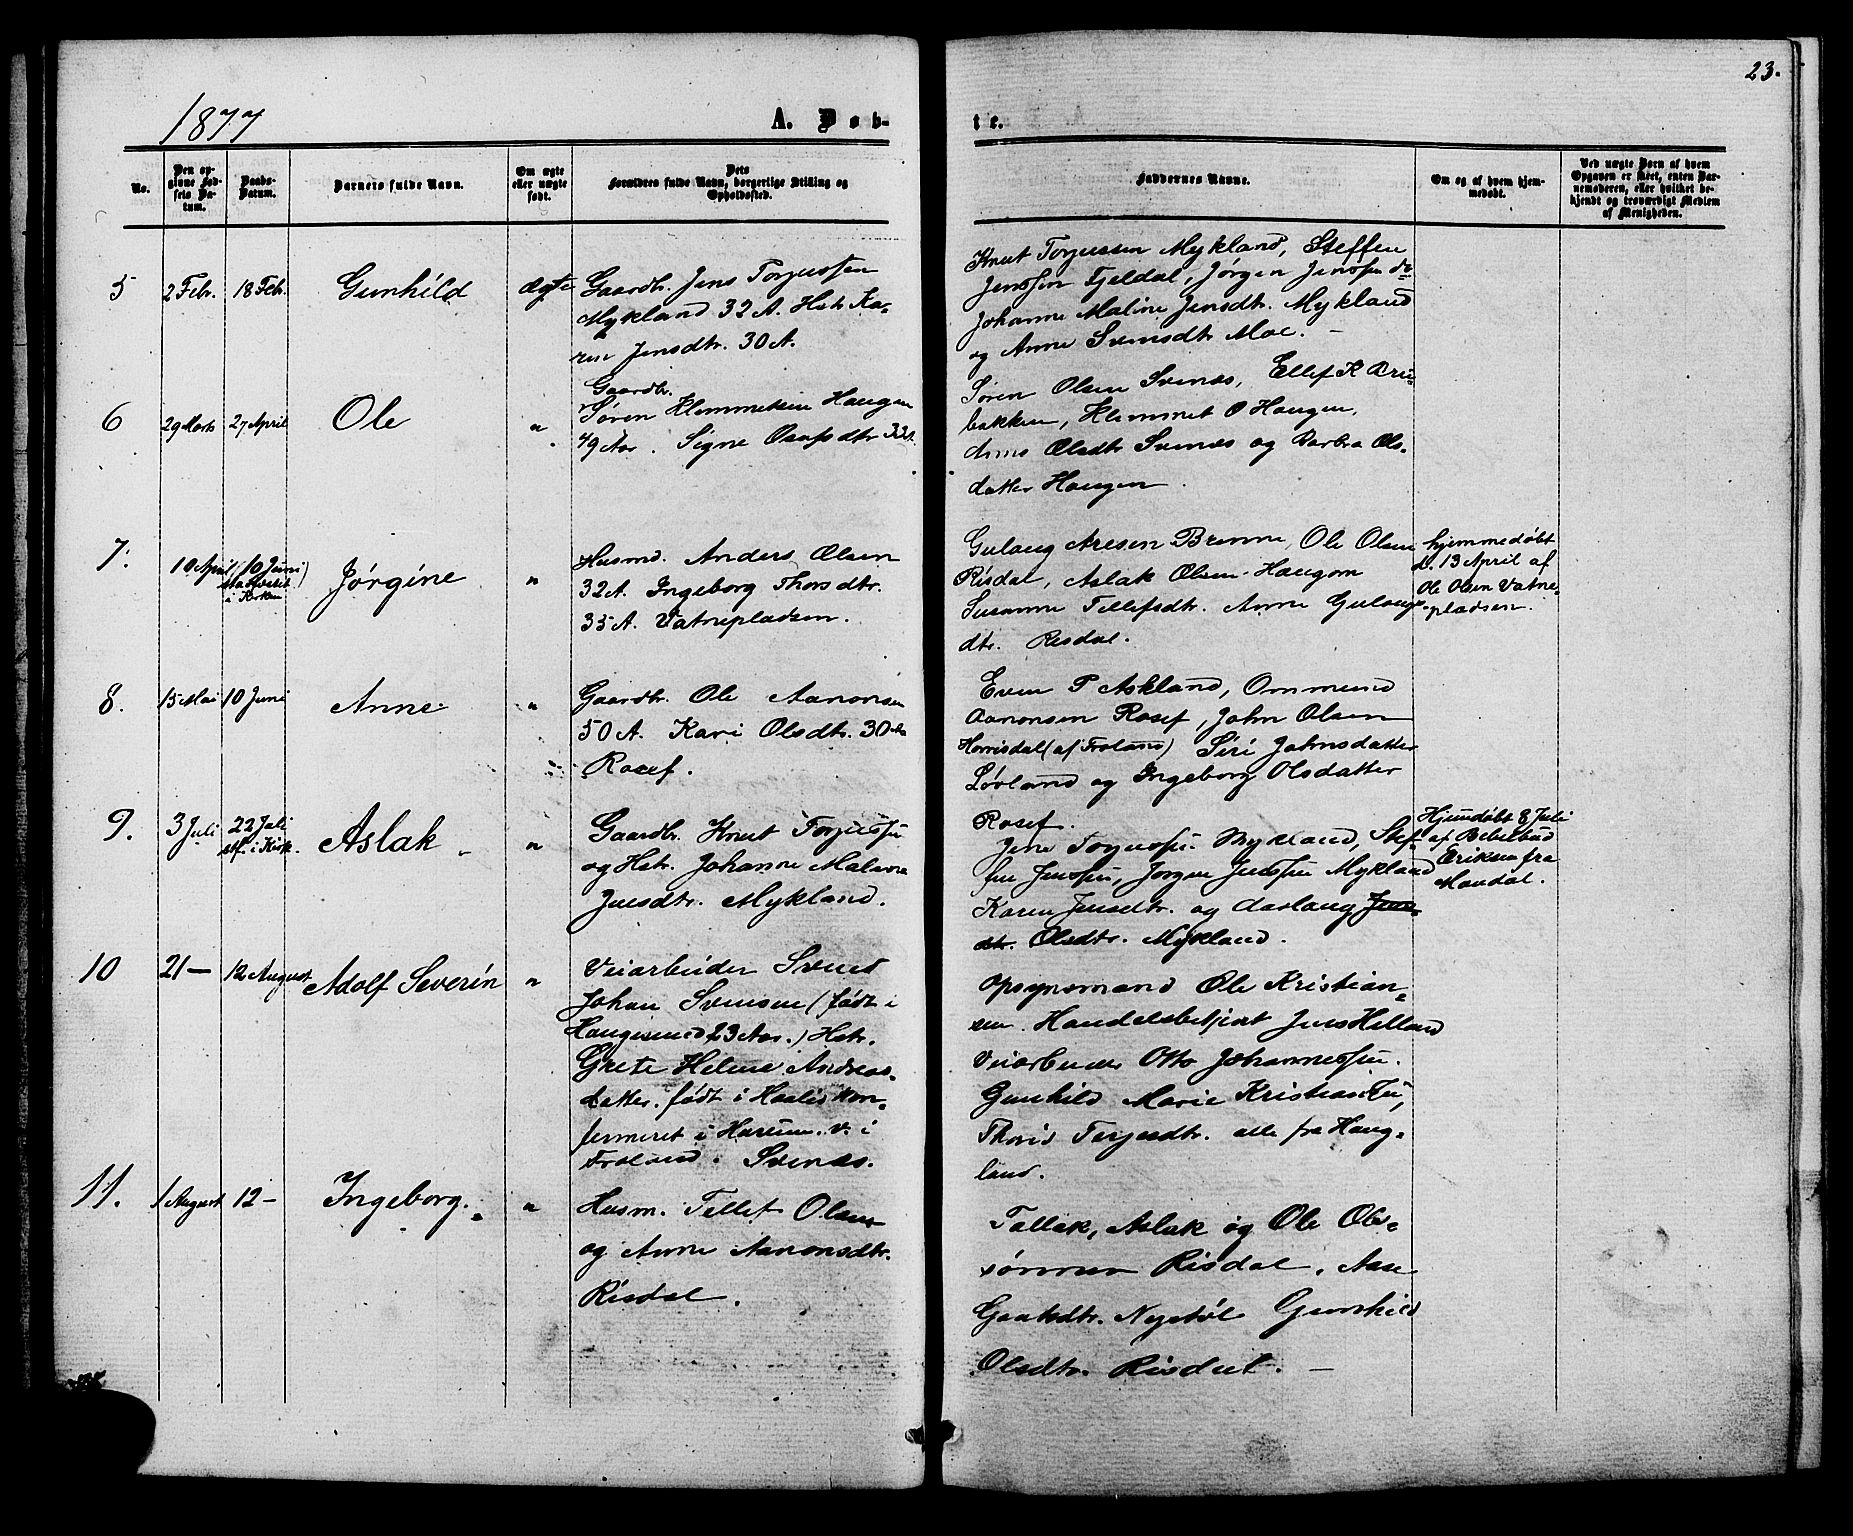 23.
1877
A. Døb-
te.
No.
Den op-
givne Fød-
sels Da-
tum.
Daabs-
Datum.
Barnets fulde Navn.
Om ægte
eller uægte
født.
Dets
Forældres fulde Navn, borgerlige Stilling og
Opholdssted.
Faddernes Navne.
Om og af hvem hjem-
medøbt.
Ved uægte Børn af hvem
Opgaven er skeet, enten Bar-
nemoderen, eller hvilket be-
kjendt og troværdigt Medlem
af Menigheden.
5
2 Febr.
18 Feb.
Gunhild
Ægte
Gaardb. Jens Torjussen
Mykland 32 A. Hstr. Ka-
ren Jensdtr. 30 A.
Knut Torjussen Mykland, Steffen
Jenssen Fjeldal, Jørgen Jenssen do
Johanne Maline Jensdtr. Mykland
og Anne Svensdtr Moe. –
6
29 Marts
27 April
Ole
"
Gaardb.
Søren Klemmetsen Haugen
49 Aar. Signe Osufsdtr 33 A.
Søren Olsen Svenes, Ellef K Breu-
bakken, Klemmet O Haugen,
Anne Olsdtr Svenes og Barbro Ols-
datter Haugen.
7.
10 April
(10 Juni)
stadfæstet
i Kirken
Jørgine
"
Husmd. Anders Olsen
32 A. Ingeborg Thorsdtr.
35 A. Vatnepladsen.
Gulaug Aresen Brenne, Ole Olsen
Risdal, Aslak Olsen Haugom
Susanne Tellefsdtr. Anne Gulaugs-
dtr. Risdal.
hjemmedøbt
d. 13 April af
Ole Olsen Vatne-
pladsen.
8.
15 Mai
10 Juni
Anne
"
Gaardbr. Ole Aanonsen
50 A. Kari Olsdtr. 30 A.
Rosef.
Even T Askland, Ommund
Aanonsen Rosef, John Olsen
Horrisdal (af Froland) Siri Johnsdatter
Løvland og Ingeborg Olsdatter
Rosef.
9.
3 Juli
22 Juli
stf. i Kirk.
Aslak
"
Gaardbr. Knut Torjussen
og Hstr. Johanne Maline
Jensdtr. Mykland.
Jens Torjussen Mykland, Stef-
fen Jenssen, Jørgen Jenssen Mykland
Karen Jensdtr. og Aaslaug Jens
dtr. Olsdtr. Mykland.
Hjemdøbt 8 Juli
af Bebelbud
Eriksen fra
Mandal.
10
21 –
12 August
Adolf Severin
"
Veiarbeider Svend
Johan Svensen (født i
Haugesund 23 Aar.) Hstr.
Grete Helene Andreas-
datter. født i Haalid kon-
fermeret i Hurum. v. i
Froland. Svenes.
Opsynsmand Ole Kristian-
sen. Handelsbetjent Jens Helland
Veiarbeider Otto Johannessen.
Gunhild Marie Kristiansen,
Thoris Terjesdtr. alle fra Haug-
land.
11.
1 August
12 –
Ingeborg.
"
Husm. Tellef Olsen
og Anne Aanonsdtr.
Risdal.
Tallak, Aslak og Ole Ols-
sønner Risdal, Aase
Gautsdtr. Nystøl Gunhild
Olsdtr. Risdal. –